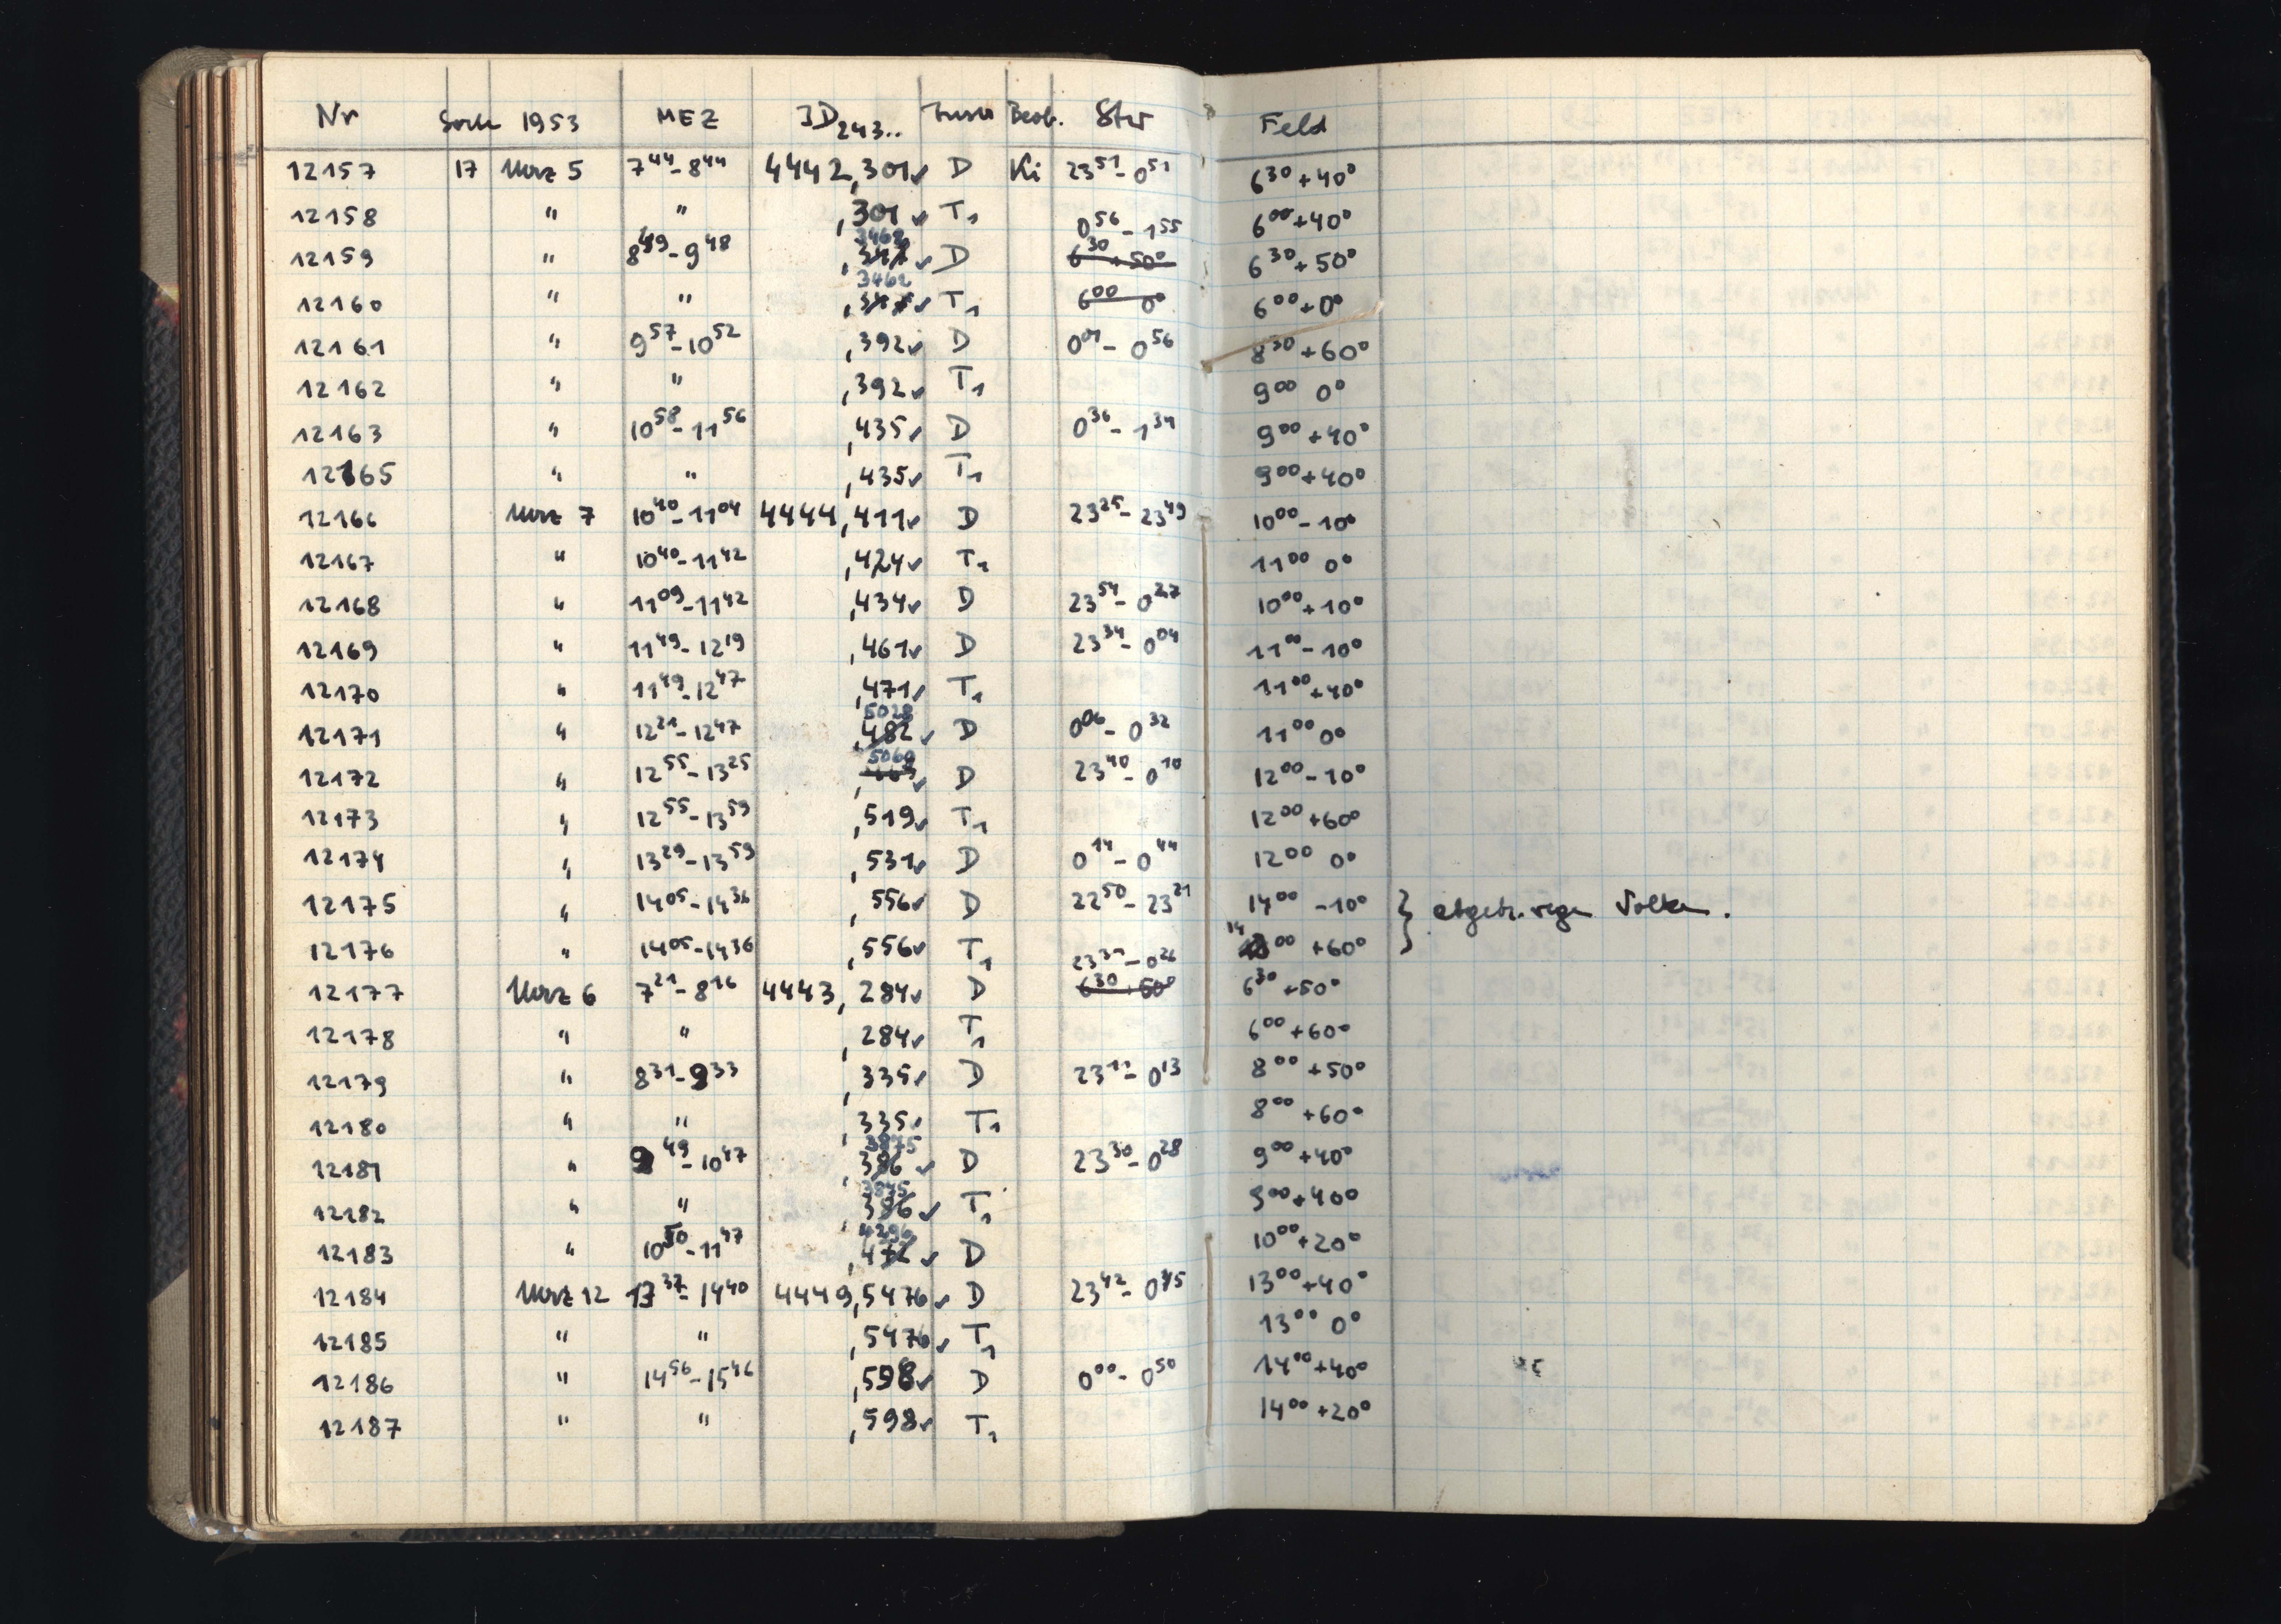 Nr 1953 MEZ JD243.. Beob. Stw Feld
12157 17 März 5 7 44 - 8 44 4442,301✓ D Ki 23 51 - 0 51 6 30 +40°
12158 " " ,301✓ T1 6 00 +40°
12159 " 8 49 - 9 48 3468 ✓ D 0 56 - 1 55 6 30 +50° 6 30 +50°
12160 " " 3462 ✓ T1 6 00 0° 6 00 +0°
12161 " 9 57 - 10 52 ,392✓ D 0 01 - 0 56 8 30 +60°
12162 " " ,392✓ T1 9 00 0°
12163 " 10 58 - 11 56 ,435✓ D 0 36 - 1 34 9 00 +40°
12165 " " ,435✓ T1 9 00 +40°
12166 März 7 10 40 - 11 04 4444,411✓ D 23 25 - 23 49 10 00 -10°
12167 " 10 40 - 11 42 ,424✓ T1 11 00 0°
12168 " 11 09 - 11 42 ,434✓ D 23 54 - 0 27 10 00 +10°
12169 " 11 49 - 12 19 ,461✓ D 23 34 - 0 04 11 00 -10°
12170 " 11 49 - 12 47 ,471✓ T1 11 00 +40°
12171 " 12 21 - 12 47 5028 ,482 ✓ D 0 06 - 0 32 11 00 0°
12172 " 12 55 - 13 25 5060 ✓ D 23 40 - 0 10 12 00 -10°
12173 " 12 55 - 13 59 ,519✓ T1 12 00 +60°
12174 " 13 29 - 13 59 ,531✓ D 0 14 - 0 44 12 00 0°
12175 " 14 05 - 14 36 ,556✓ D 22 50 - 23 21 14 00 -10° } abgebr. wegen Wolken.
12176 " 14 05 - 14 36 ,556✓ T1 14 00 +60°
12177 März 6 7 21 - 8 16 4443,284✓ D 23 31 - 0 26 6 30 +50° 6 30 +50°
12178 " " ,284✓ T1 6 00 +60°
12179 " 8 31 - 9 33 ,335✓ D 23 11 - 0 13 8 00 +50°
12180 " " ,335✓ T1 8 00 +60°
12181 " 9 49 - 10 47 3875 ,386 ✓ D 23 30 - 0 28 9 00 +40°
12182 " " ,386 ✓ T1 9 00 +40°
12183 " 10 50 - 11 47 4296 ✓ D 10 00 +20°
12184 März 12 13 37 - 14 40 4449,5476✓ D 23 42 - 0 45 13 00 +40°
12185 " " ,5476✓ T1 13 00 0°
12186 " 14 56 - 15 46 ,598✓ D 0 00 - 0 50 14 00 +40°
12187 " " ,598✓ T1 14 00 +20°